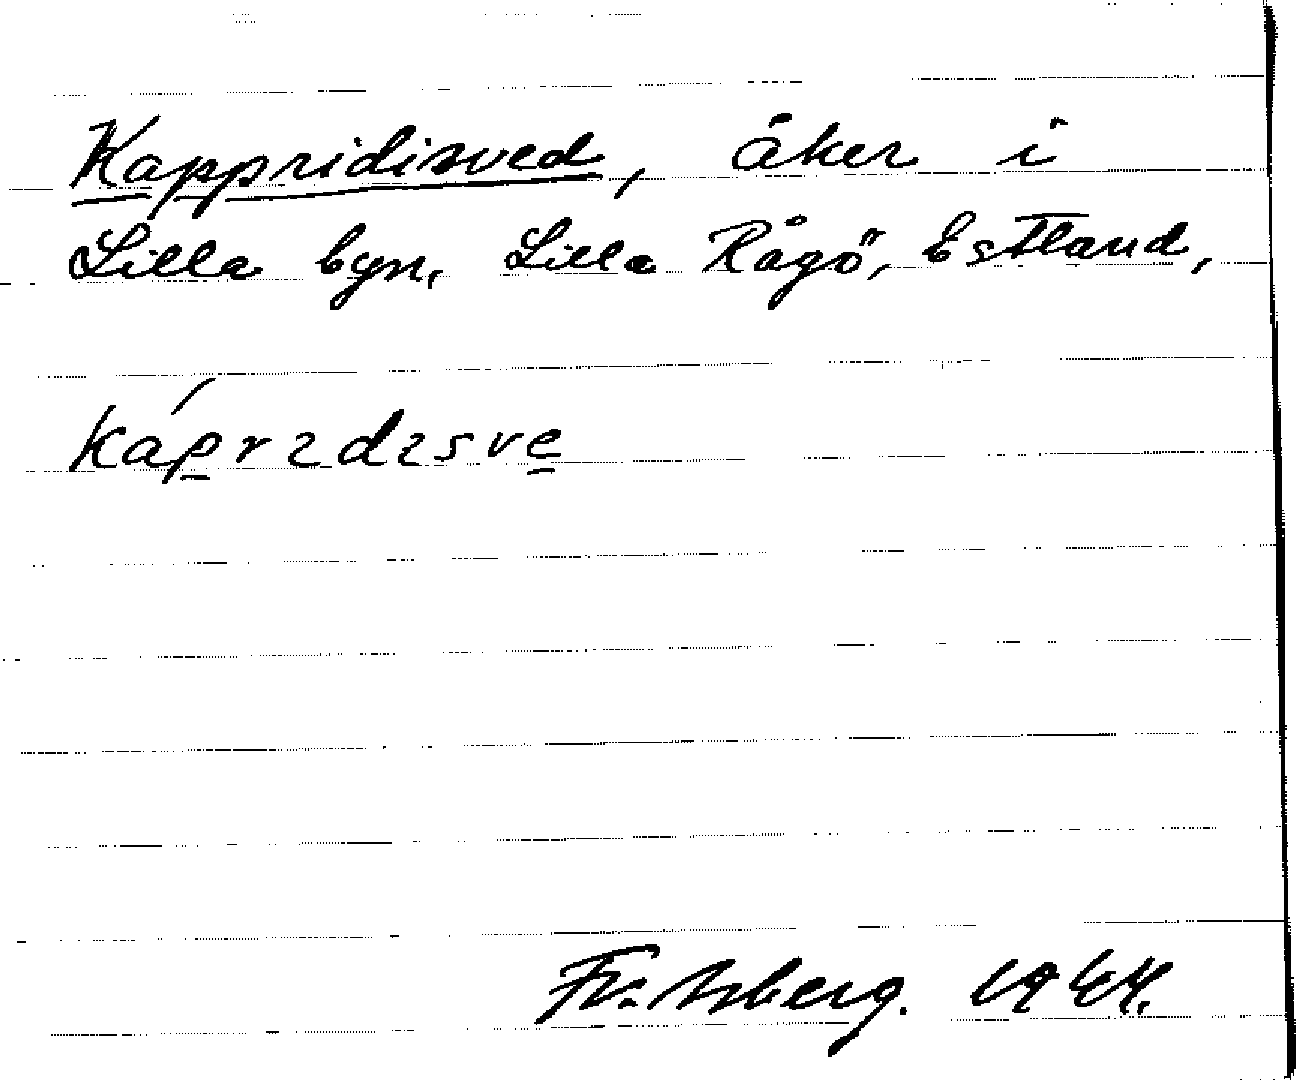 Kappridisved, åker i
Lilla byn, Lilla Rågö, Estland,
kaprɩdɩsve
1944.